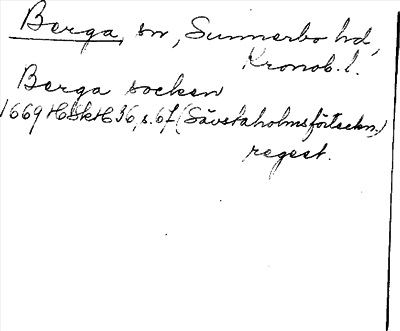 Berga, sn, Sunnerbo hd,
Kronob. l.
Berga socken
1669 HSkH 36, s. 67 (Sävstaholmsförteckn.)
regest.